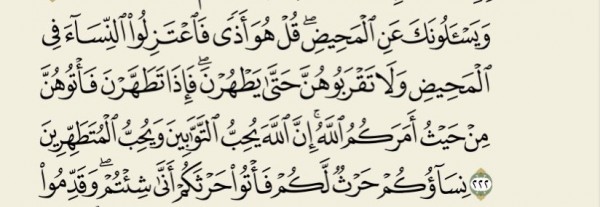 وَيَسْـَٔلُونَكَ عَنِ ٱلْمَحِيضِ ۖ قُلْ هُوَ أَذًى فَٱعْتَزِلُوا۟ ٱلنِّسَآءَ فِى
ٱلْمَحِيضِ وَلَا تَقْرَبُوهُنَّ حَتَّىٰ يَطْهُرْنَ ۖ فَإِذَا تَطَهَّرْنَ فَأْتُوهُنَّ
مِنْ حَيْثُ أَمَرَكُمُ ٱللَّهُ ۚ إِنَّ ٱللَّهَ يُحِبُّ ٱلتَّوَّٰبِينَ وَيُحِبُّ ٱلْمُتَطَهِّرِينَ
٢٢٢ نِسَآؤُكُمْ حَرْثٌ لَّكُمْ فَأْتُوا۟ حَرْثَكُمْ أَنَّىٰ شِئْتُمْ ۖ وَقَدِّمُوا۟